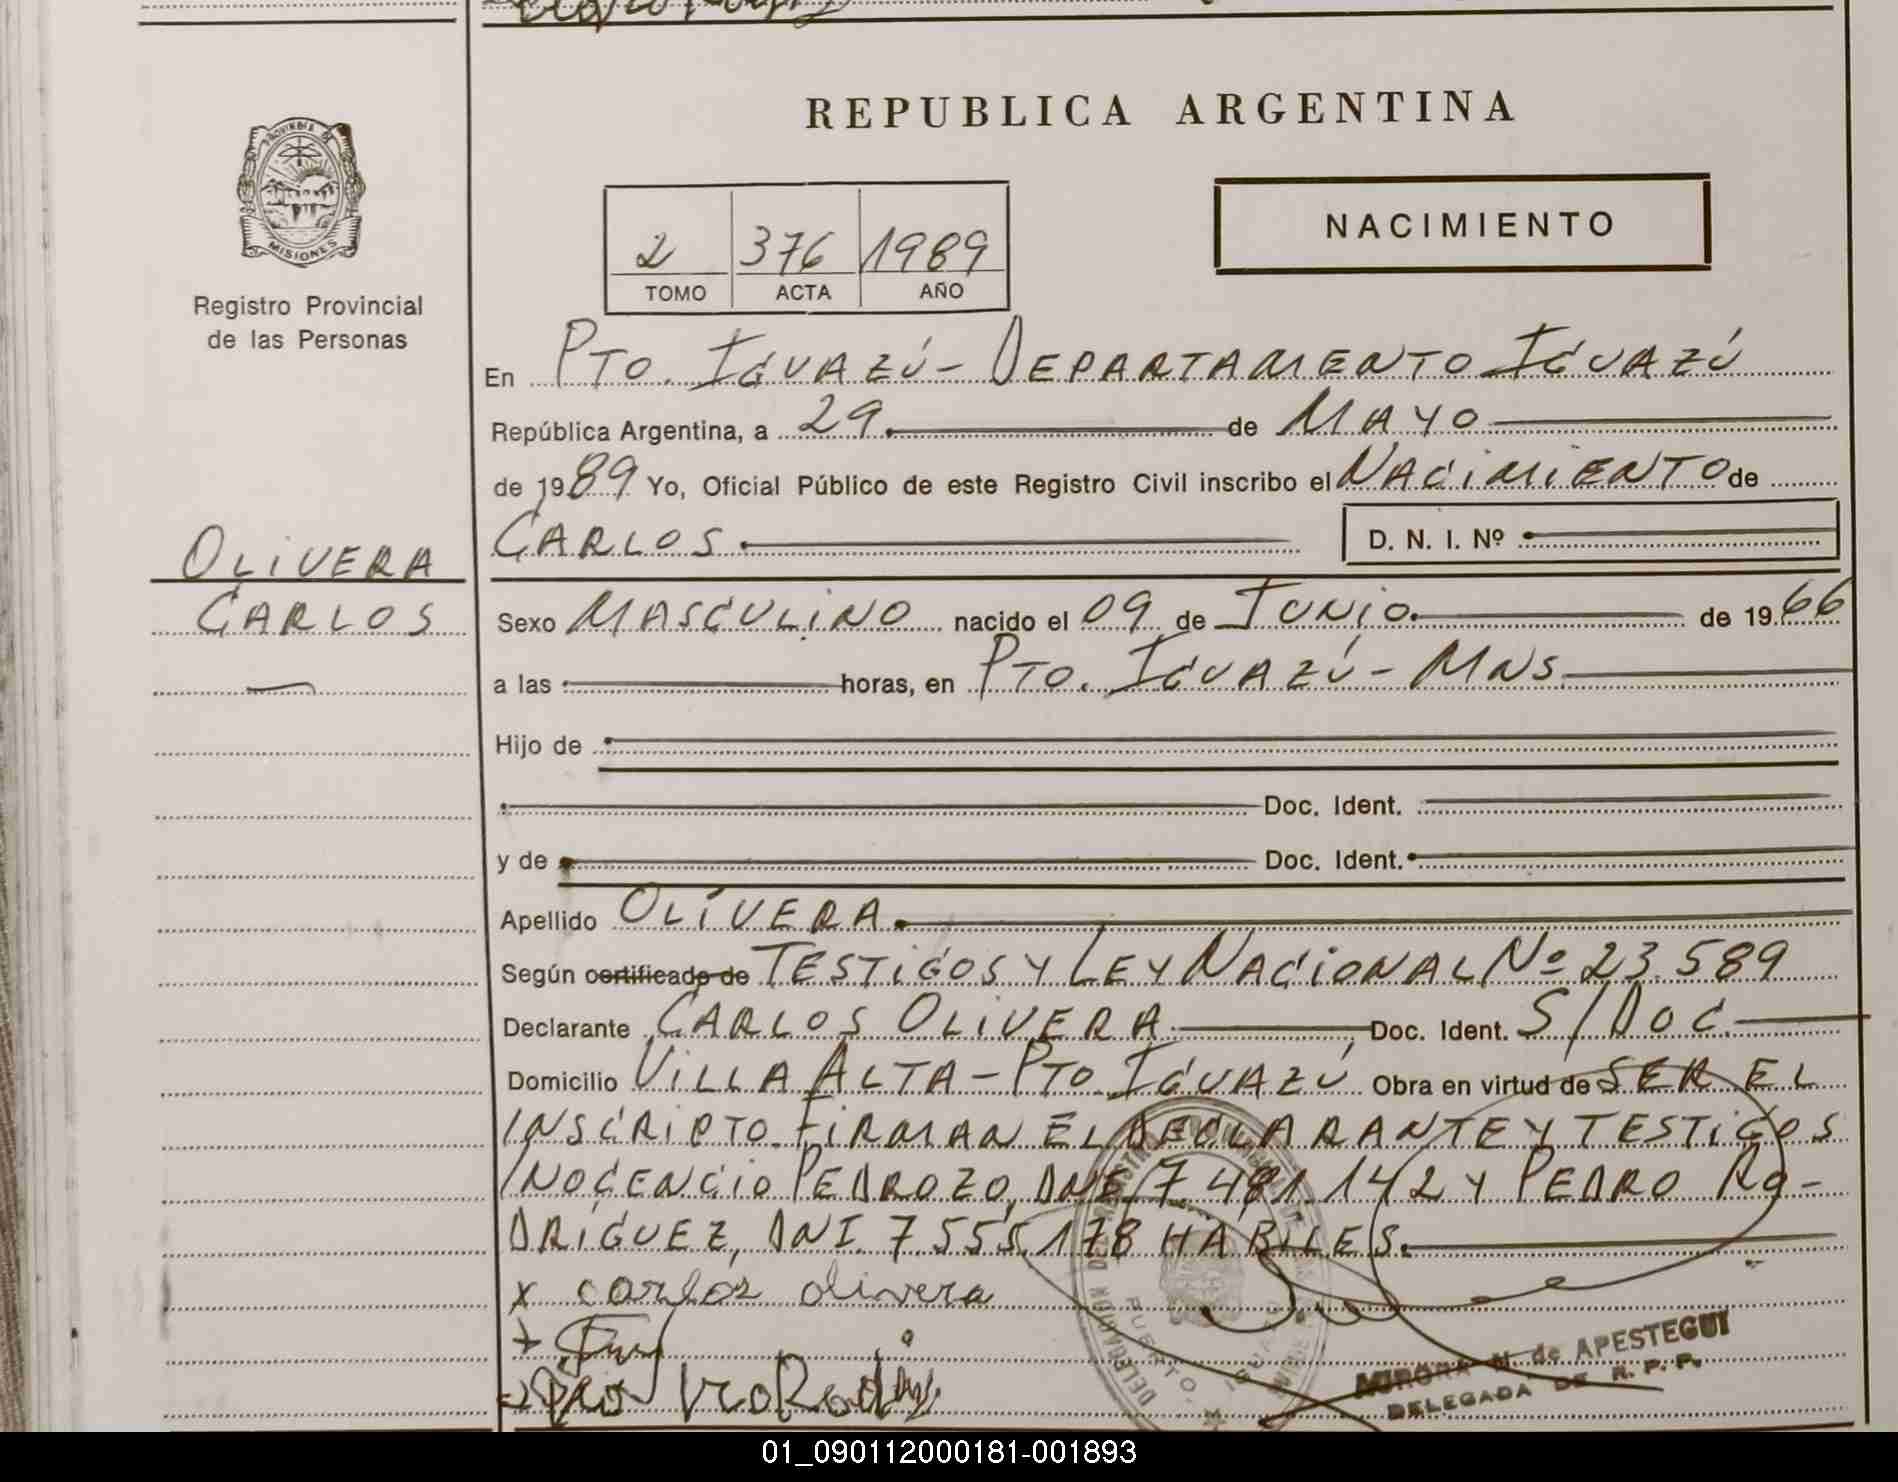 REPUBLICA ARGENTINA
PROVINCIA DE
MISIONES
Registro Provincial
de las Personas
2 376 1989
TOMO ACTA AÑO
NACIMIENTO
En PTO. IGUAZÚ - DEPARTAMENTO IGUAZÚ
República Argentina, a 29 de MAYO
de 1989 Yo, Oficial Público de este Registro Civil inscribo el NACIMIENTO de
CARLOS D. N. I. Nº
OLIVERA
CARLOS
Sexo MASCULINO nacido el 09 de JUNIO de 1966
a las horas, en PTO. IGUAZÚ - MNS.
Hijo de
Doc. Ident.
y de Doc. Ident.
Apellido OLIVERA
Según certificado de TESTIGOS Y LEY NACIONAL Nº 23.589
Declarante CARLOS OLIVERA Doc. Ident. S/DOC.
Domicilio VILLA ALTA - PTO. IGUAZÚ Obra en virtud de SER EL
INSCRIPTO. FIRMAN EL DECLARANTE Y TESTIGOS
INOCENCIO PEDROZO, DNI 7.481.142 Y PEDRO RO-
DRIGUEZ, DNI. 7.555.178 HABILES.
x carlos olivera
AURORA N. de APESTEGUI
DELEGADA DE R. P. P.
01_090112000181-001893